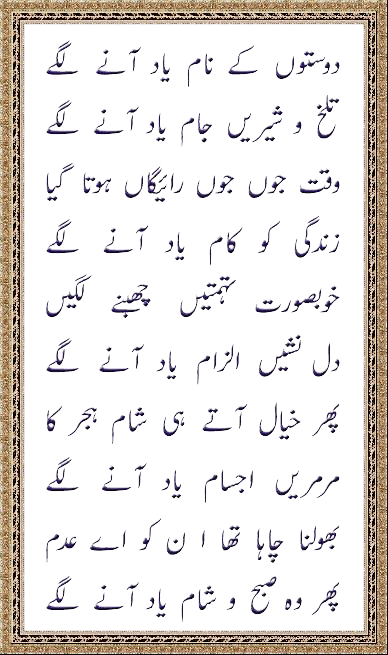 دوستوں کے نام یاد آنے لگے
تلخ و شیریں جام یاد آنے لگے
وقت جوں جوں رائیگاں ہوتا گیا
زندگی کو کام یاد آنے لگے
خوبصورت تہمتیں چھبنے لگیں
دل نشیں الزام یاد آنے لگے
پھر خیال آتے ہی شام ہجر کا
مرمریں اجسام یاد آنے لگے
بھولنا چاہا تھا ا ن کو اے عدم
پھر وہ صبح و شام یاد آنے لگے